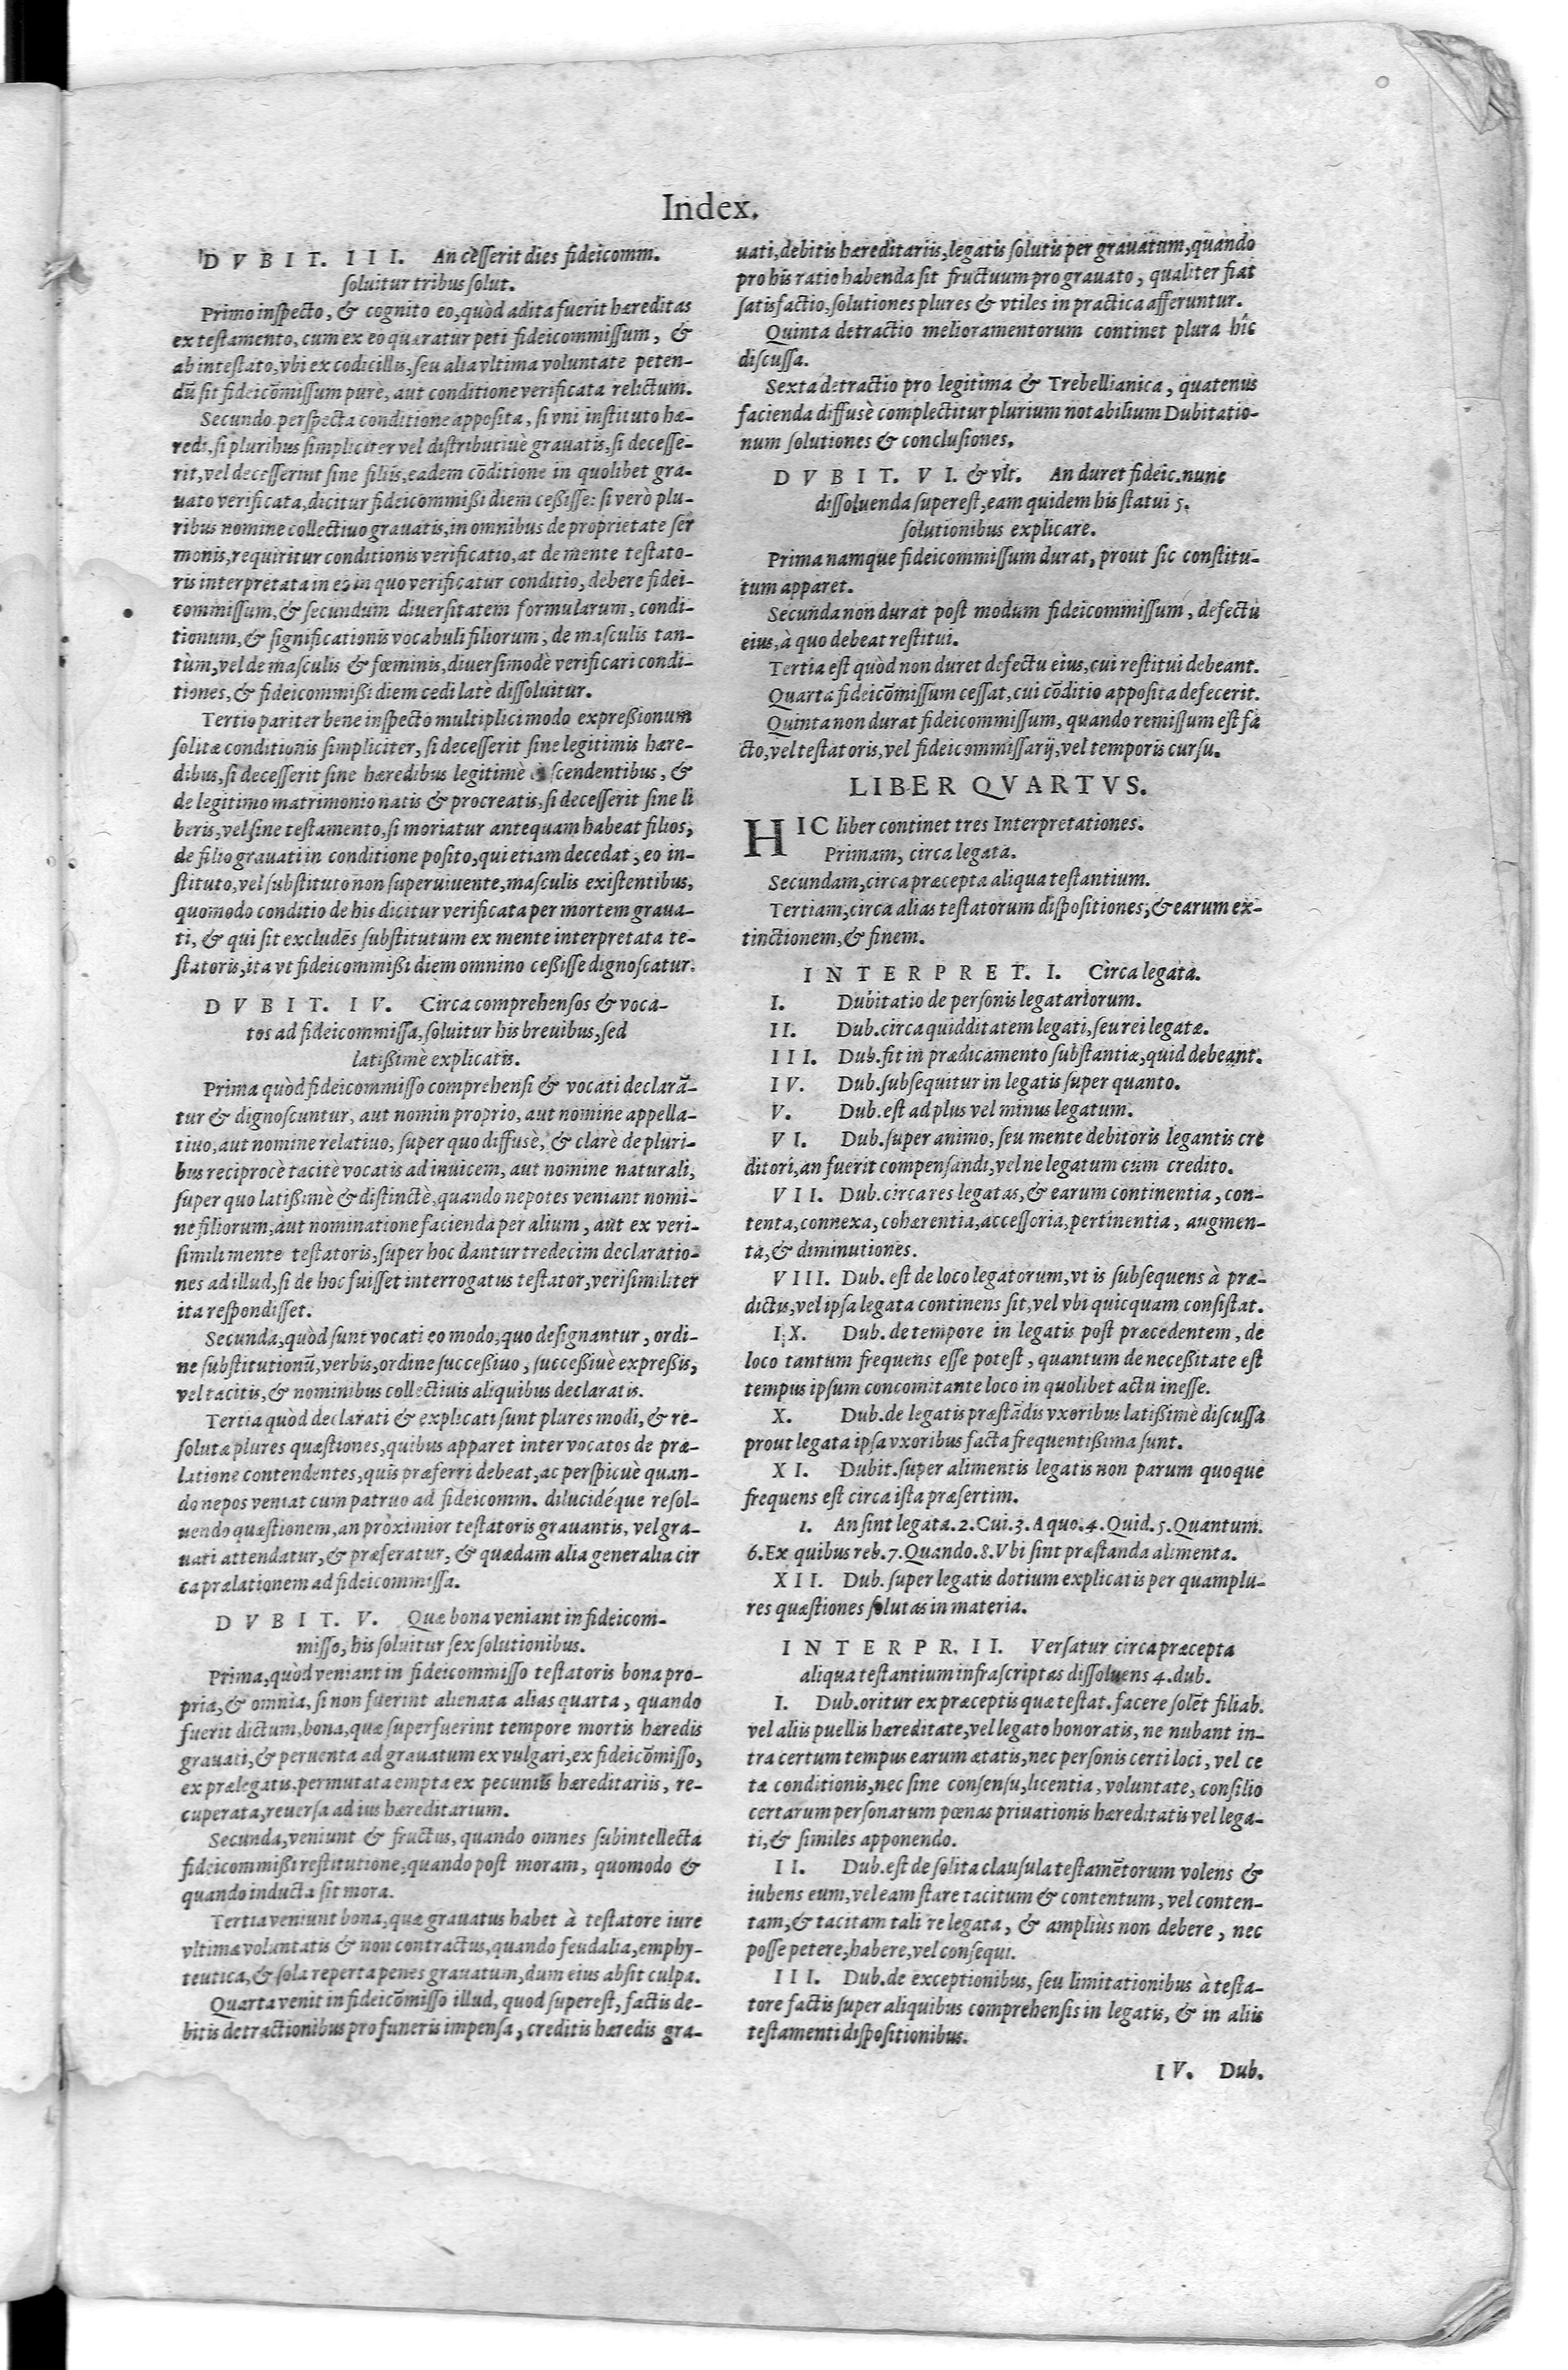 Index.
DVBIT. III. An cesserit dies fideicomm.
soluitur tribus solut.
Primo inspecto, & cognito eo, quòd adita fuerit hæreditas
ex testamento, cum ex eo quæratur peti fideicommissum, &
ab intestato, vbi ex codicillis, seu alia vltima voluntate peten-
dũ sit fideicõmissum purè, aut conditione verificata relictum.
Secundo perspecta conditione apposita, si vni instituto hæ-
redi, si pluribus simpliciter vel distributiuè grauatis, si decesse-
rit, vel decesserint sine filiis, eadem cõditione in quolibet gra-
uato verificata, dicitur fideicommißi diem ceßisse: si verò plu-
ribus nomine collectiuo grauatis, in omnibus de proprietate ser
monis, requiritur conditionis verificatio, at de mente testato-
ris interpretata in eo in quo verificatur conditio, debere fidei-
commissum, & secundum diuersitatem formularum, condi-
tionum, & significationis vocabuli filiorum, de masculis tan-
tùm, vel de masculis & fœminis, diuersimodè verificari condi-
tiones, & fideicommißi diem cedi latè dissoluitur.
Tertio pariter bene inspecto multiplici modo expreßionum
solitæ conditionis simpliciter, si decesserit sine legitimis hære-
dibus, si decesserit sine hæredibus legitimè scendentibus, &
de legitimo matrimonio natis & procreatis, si decesserit sine li
beris, vel sine testamento, si moriatur antequam habeat filios,
de filio grauati in conditione posito, qui etiam decedat, eo in-
stituto, vel substituto non superuiuente, masculis existentibus,
quomodo conditio de his dicitur verificata per mortem graua-
ti, & qui sit excludẽs substitutum ex mente interpretata te-
statoris, ita vt fideicommißi diem omnino ceßisse dignoscatur.
DVBIT. IV. Circa comprehensos & voca-
tos ad fideicommissa, soluitur his breuibus, sed
latißimè explicatis.
Prima quòd fideicommisso comprehensi & vocati declarã-
tur & dignoscuntur, aut nomin proprio, aut nomine appella-
tiuo, aut nomine relatiuo, super quo diffusè, & clarè de pluri-
bus reciprocè tacitè vocatis ad inuicem, aut nomine naturali,
super quo latißimè & distinctè, quando nepotes veniant nomi-
ne filiorum, aut nominatione facienda per alium, aut ex veri-
simili mente testatoris, super hoc dantur tredecim declaratio-
nes ad illud, si de hoc fuisset interrogatus testator, verisimiliter
ita respondisset.
Secunda, quòd sunt vocati eo modo, quo designantur, ordi-
ne substitutionũ, verbis, ordine succeßiuo, succeßiuè expreßis,
vel tacitis, & nominibus collectiuis aliquibus declaratis.
Tertia quòd declarati & explicati sunt plures modi, & re-
solutæ plures quæstiones, quibus apparet inter vocatos de præ-
latione contendentes, quis præferri debeat, ac perspicuè quan-
do nepos veniat cum patruo ad fideicomm. dilucidéque resol-
uendo quæstionem, an pròximior testatoris grauantis, vel gra-
uati attendatur, & præferatur, & quædam alia generalia cir
ca prælationem ad fideicommissa.
DVBIT. V. Quæ bona veniant in fideicom-
misso, his soluitur sex solutionibus.
Prima, quòd veniant in fideicommisso testatoris bona pro-
pria, & omnia, si non fuerint alienata alias quarta, quando
fuerit dictum, bona, quæ superfuerint tempore mortis hæredis
grauati, & peruenta ad grauatum ex vulgari, ex fideicõmisso,
ex prælegatis, permutata empta ex pecuniis hæreditariis, re-
cuperata, reuersa ad ius hæreditarium.
Secunda, veniunt & fructus, quando omnes subintellecta
fideicommißi restitutione, quando post moram, quomodo &
quando inducta sit mora.
Tertia veniunt bona, quæ grauatus habet à testatore iure
vltimæ voluntatis & non contractus, quando feudalia, emphy-
teutica, & sola reperta penes grauatum, dum eius absit culpa.
Quarta venit in fideicõmisso illud, quod superest, factis de-
bitis detractionibus pro funeris impensa, creditis hæredis gra-
uati, debitis hæreditariis, legatis solutis per grauatum, quando
pro his ratio habenda sit fructuum pro grauato, qualiter fiat
satisfactio, solutiones plures & vtiles in practica afferuntur.
Quinta detractio melioramentorum continet plura hîc
discussa.
Sexta detractio pro legitima & Trebellianica, quatenus
facienda diffusè complectitur plurium notabilium Dubitatio-
num solutiones & conclusiones.
DVBIT. VI. & vlt. An duret fideic. nunc
dissoluenda superest, eam quidem his statui 5.
solutionibus explicare.
Prima namque fideicommissum durat, prout sic constitu-
tum apparet.
Secunda non durat post modum fideicommissum, defectu
eius, à quo debeat restitui.
Tertia est quòd non duret defectu eius, cui restitui debeant.
Quarta fideicõmissum cessat, cui cõditio apposita defecerit.
Quinta non durat fideicommissum, quando remissum est fa
cto, vel testatoris, vel fideicommissarij, vel temporis cursu.
LIBER QVARTVS.
HIC liber continet tres Interpretationes.
Primam, circa legata.
Secundam, circa præcepta aliqua testantium.
Tertiam, circa alias testatorum dispositiones, & earum ex-
tinctionem, & finem.
INTERPRET. I. Circa legata.
I. Dubitatio de personis legatariorum.
II. Dub. circa quidditatem legati, seu rei legatæ.
III. Dub. fit in prædicamento substantiæ, quid debeant.
IV. Dub. subsequitur in legatis super quanto.
V. Dub. est ad plus vel minus legatum.
VI. Dub. super animo, seu mente debitoris legantis cre
ditori, an fuerit compensandi, vel ne legatum cum credito.
VII. Dub. circa res legatas, & earum continentia, con-
tenta, connexa, cohærentia, accessoria, pertinentia, augmen-
ta, & diminutiones.
VIII. Dub. est de loco legatorum, vt is subsequens à præ-
dictis, vel ipsa legata continens sit, vel vbi quicquam consistat.
IX. Dub. de tempore in legatis post præcedentem, de
loco tantum frequens esse potest, quantum de neceßitate est
tempus ipsum concomitante loco in quolibet actu inesse.
X. Dub. de legatis præstãdis vxoribus latißimè discussa
prout legata ipsa vxoribus facta frequentißima sunt.
XI. Dubit. super alimentis legatis non parum quoque
frequens est circa ista præsertim.
1. An sint legata. 2. Cui. 3. A quo. 4. Quid. 5. Quantum.
6. Ex quibus reb. 7. Quando. 8. Vbi sint præstanda alimenta.
XII. Dub. super legatis dotium explicatis per quamplu-
res quæstiones solutas in materia.
INTERPR. II. Versatur circa præcepta
aliqua testantium infrascriptas dissoluens 4. dub.
I. Dub. oritur ex præceptis quæ testat. facere solẽt filiab.
vel aliis puellis hæreditate, vel legato honoratis, ne nubant in-
tra certum tempus earum ætatis, nec personis certi loci, vel ce
tæ conditionis, nec sine consensu, licentia, voluntate, consilio
certarum personarum pœnas priuationis hæreditatis vel lega-
ti, & similes apponendo.
II. Dub. est de solita clausula testamẽtorum volens &
iubens eum, vel eam stare tacitum & contentum, vel conten-
tam, & tacitam tali re legata, & ampliùs non debere, nec
posse petere, habere, vel consequi.
III. Dub. de exceptionibus, seu limitationibus à testa-
tore factis super aliquibus comprehensis in legatis, & in aliis
testamenti dispositionibus.
IV. Dub.